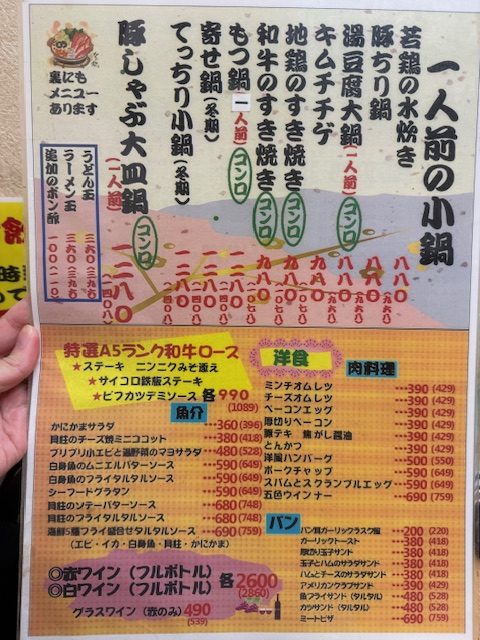 裏にも
メニュー
あります
一人前の小鍋
若鶏の水炊き 八八〇
豚ちり鍋 八八〇
湯豆腐大鍋(一人前) コンロ 八八〇
キムチチゲ
地鶏のすき焼き コンロ
和牛のすき焼き コンロ
もつ鍋(一人前) コンロ
寄せ鍋(冬期)
てっちり小鍋(冬期)
豚しゃぶ大皿鍋(一人前) コンロ 一二八〇(一四〇八)
うどん玉
ラーメン玉
追加のポン酢 一〇〇(一一〇)
特選A5ランク和牛ロース
★ステーキ ニンニクみそ添え
★サイコロ鉄板ステーキ
★ビフカツデミソース 各990
(1089)
魚介
かにかまサラダ …360(396)
貝柱のチーズ焼ミニココット …380(418)
プリプリ小エビと温野菜のマヨサラダ …480(528)
白身魚のムニエルバターソース …590(649)
白身魚のフライタルタルソース …590(649)
シーフードグラタン …590(649)
貝柱のソテーバターソース …680(748)
貝柱のフライタルタルソース …680(748)
海鮮5種フライ盛合せタルタルソース …690(759)
(エビ・イカ・白身魚・貝柱・かにかま)
◎赤ワイン(フルボトル)
◎白ワイン(フルボトル) 各2600
(2860)
グラスワイン(赤のみ)490
(539)
洋食
肉料理
ミンチオムレツ …390(429)
チーズオムレツ …390(429)
ベーコンエッグ …390(429)
厚切りベーコン …390(429)
豚テキ 焦がし醤油 …390(429)
とんかつ …390(429)
洋風ハンバーグ …500(550)
ポークチャップ …590(649)
スパムとスクランブルエッグ …590(649)
五色ウインナー …690(759)
パン
ガーリックラスク …200(220)
ガーリックトースト …380(418)
厚切り玉子サンド …380(418)
玉子とハムのサラダサンド …380(418)
ハムとチーズのサラダサンド …380(418)
アメリカンクラブサンド …390(429)
魚フライサンド(タルタル) …480(528)
カツサンド(タルタル) …480(528)
ミートピザ …690(759)